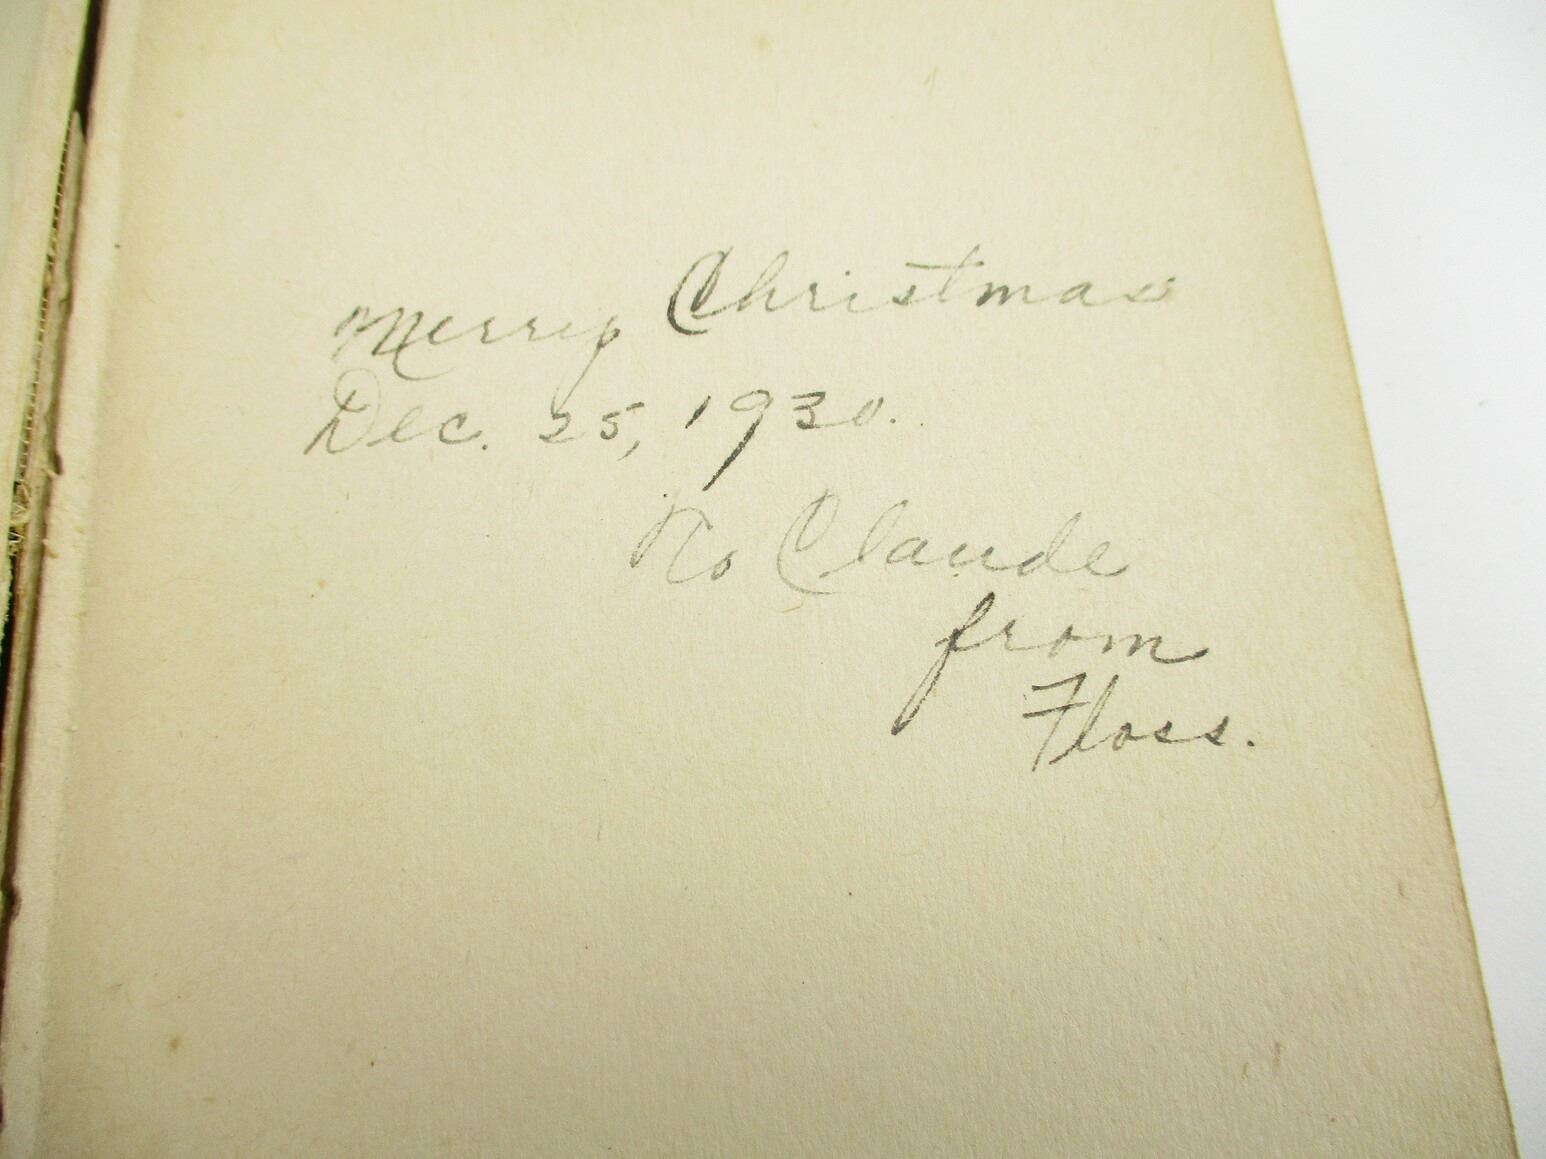 Merry Christmas
Dec. 25, 1930.
To Claude
from
Floss.